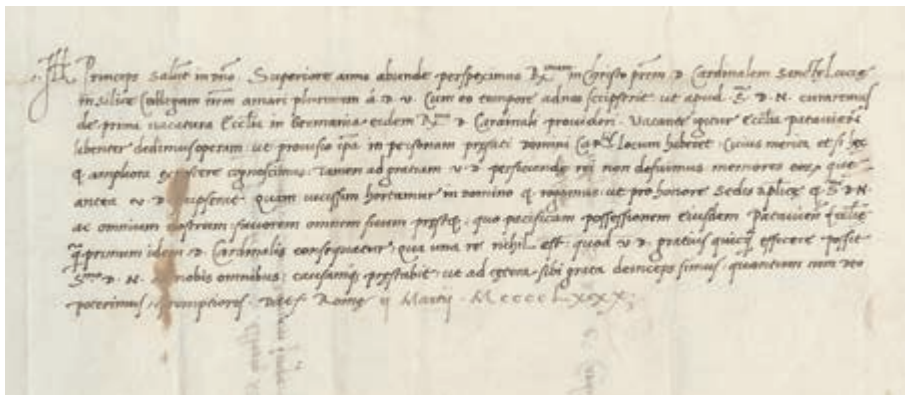 Ill. Princeps salutem in dno. Superiore anno abunde perspeximus R.mum in Christo prem D. Cardinalem Sancte Lucie
in silice Collegam nrm amari plurimum á D. V. Cum eo tempore ad nos scripserit ut apud S. D. N. curaremus
de prima vacatura Ecclia in Germania eidem R. D. Cardinali provideri. Vacante igitur ecclia patavieñ
libenter dedimus operam ut provisio ipa in personam prefati domini Carlis locum haberet. Cuius merita et si hec
q ampliora cognoscimus tamen ad gratiam v. D. perficiende rei non defuimus memores eorum que
antea v. D. scripserat. Quam vicissim hortamur in domino q rogamus ut pro honore Sedis aplice q S. D. N.
ac omnium nostrum favorem omnem suum prestet quo pacificam possessionem eiusdem Patavien ecclie
q primum idem D. Cardinalis consequatur qua una re nihil est quod v. D. gratius quicq efficere possit
S.mo D. N. nobis omnibus causamq prestabit ut ad cetera sibi grata deinceps simus quantum cum deo
poterimus promptiores. Dat. Rome ij Martij MccccLxxx.